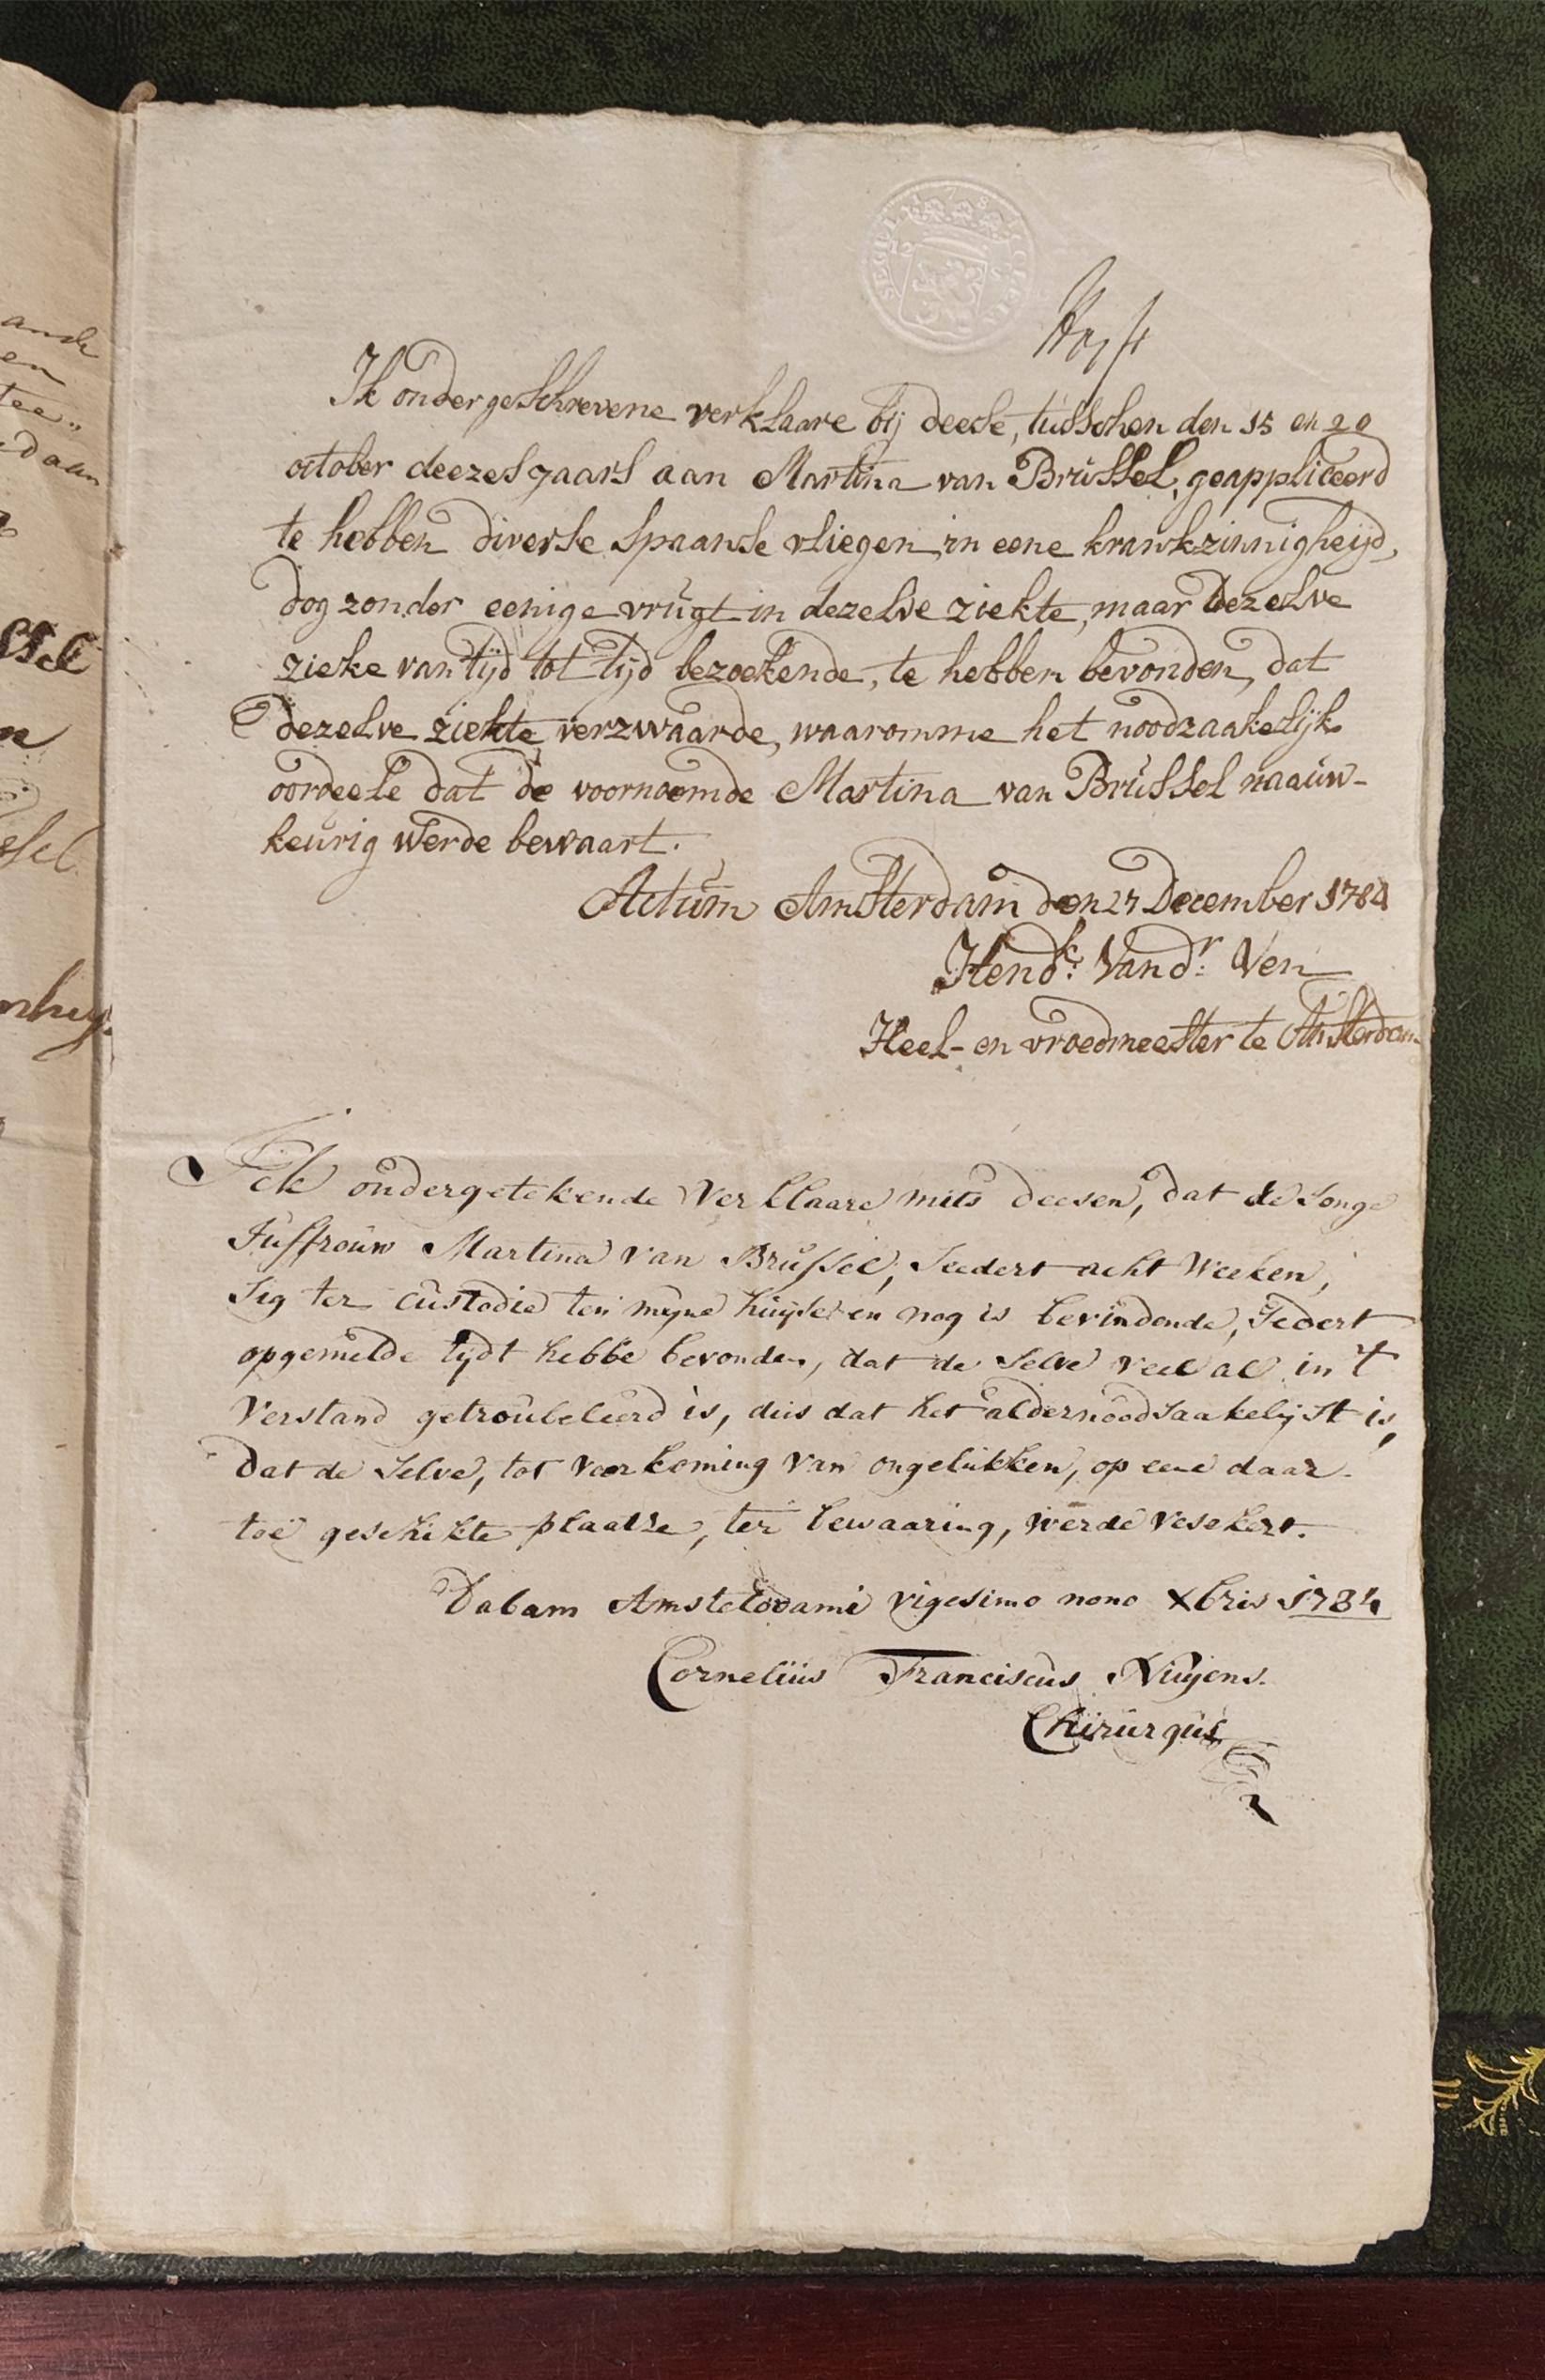 Ik ondergeschrevene verklaare bij deese, tusschen den 15 en 20
october deezes jaars aan Martina van Brussel, geappliceerd
te hebben diverse spaanse vliegen, in eene krankzinnigheijd,
dog zonder eenige vrugt in dezelve ziekte, maar dezelve
zieke van tijd tot tijd bezoekende, te hebben bevonden, dat
dezelve ziekte verzwaarde, waaromme het noodzaakelijk
oordeele dat de voornoemde Martina van Brussel naauw-
keurig werde bewaart.
Actum Amsterdam den 27 December 1784
Hendk: Vandr: Ven
Heel- en vroedmeester te Amsterdam
Ick ondergetekende Verklaare mits deesen, dat de Jonge
Juffrouw Martina van Brussel, seedert acht Weeken,
sig ter custodie ten mijne huijse en nog is bevindende, sedert
opgemelde tijdt hebbe bevonden, dat de selve veel al in 't
Verstand getroubeleerd is, dus dat het aldernoodsaakelijst is,
Dat de selve, tot voorkoming van ongelukken, op eene daar-
toe geschikte plaatse, ter bewaaring, werde vesekert.
Dabam Amstelodami vigesimo nono Xbris 1784
Cornelius Franciscus Nuyens.
Chirurgus